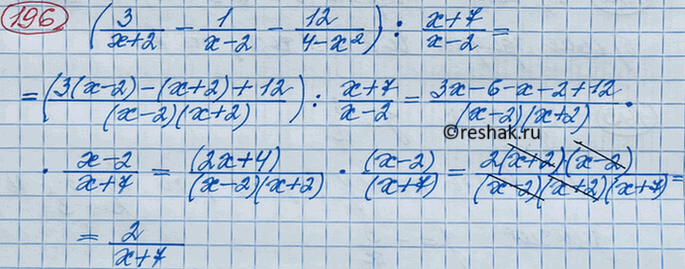 196 (3/(x+2) − 1/(x−2) − 12/(4−x²)) : (x+7)/(x−2) =
= ((3(x−2)−(x+2)+12)/((x−2)(x+2))) : (x+7)/(x−2) = (3x−6−x−2+12)/((x−2)(x+2)) ·
©reshak.ru
· (x−2)/(x+7) = (2x+4)/((x−2)(x+2)) · (x−2)/(x+7) = 2(x+2)·(x−2)/((x−2)(x+2)(x+7)) =
= 2/(x+7)